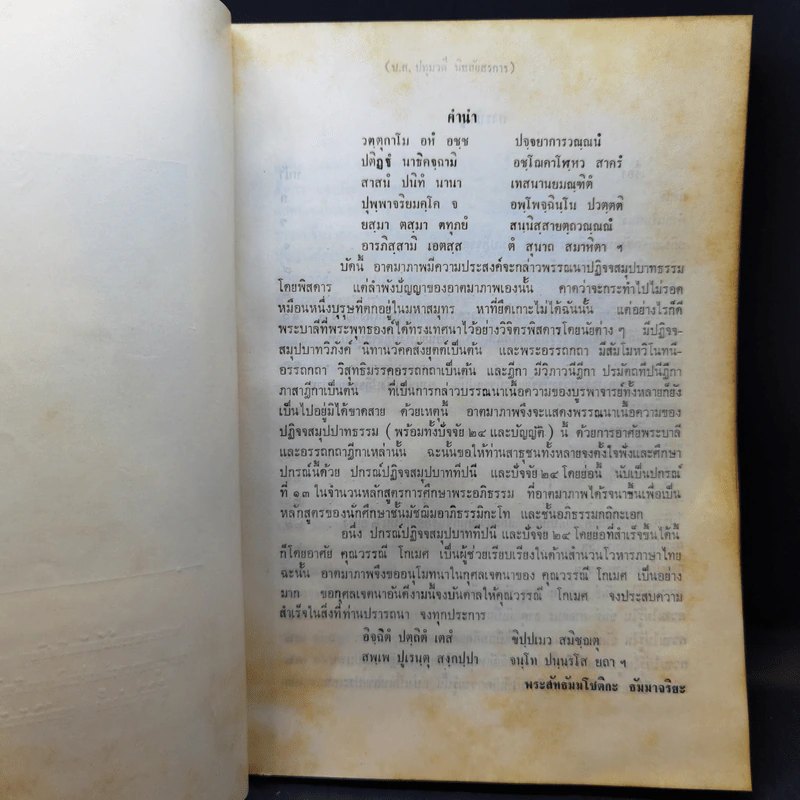 (น.ส. ปทุมวดี พิชสังสรการ)
คำนำ
วตฺตุกาโม อหํ อชฺช ปจฺจยาการวณฺณนํ
ปติฏฺฐํ นาธิคจฺฉามิ อชฺโฌคาโฬฺหว สาครํ
สาสนํ ปนิทํ นานา เทสนานยมณฺฑิตํ
ปุพฺพาจริยมคฺโค จ อพฺโพจฺฉินฺโน ปวตฺตติ
ยสฺมา ตสฺมา ตทุภยํ สนฺนิสฺสายตฺถวณฺณณํ
อารภิสฺสามิ เอตสฺส ตํ สุนาถ สมาหิตา ฯ
บัดนี้ อาตมาภาพมีความประสงค์จะกล่าวพรรณนาปฏิจจสมุปบาทธรรม
โดยพิสดาร แต่ลำพังปัญญาของอาตมาภาพเองนั้น คาดว่าจะกระทำไปไม่รอด
เหมือนหนึ่งบุรุษที่ตกอยู่ในมหาสมุทร หาที่ยึดเกาะไม่ได้ฉันนั้น แต่อย่างไรก็ดี
พระบาลีที่พระพุทธองค์ได้ทรงเทศนาไว้อย่างวิจิตรพิสดารโดยนัยต่าง ๆ มีปฏิจจ-
สมุปบาทวิภังค์ นิทานวัคคสังยุตต์เป็นต้น และพระอรรถกถา มีสัมโมหวิโนทนี-
อรรถกถา วิสุทธิมรรคอรรถกถาเป็นต้น และฎีกา มีวิภาวนีฎีกา ปรมัตถทีปนีฎีกา
ภาสาฎีกาเป็นต้น ที่เป็นการกล่าวบรรณนาเนื้อความของบูรพาจารย์ทั้งหลายก็ยัง
เป็นไปอยู่มิได้ขาดสาย ด้วยเหตุนี้ อาตมาภาพจึงจะแสดงพรรณนาเนื้อความของ
ปฏิจจสมุปปาทธรรม (พร้อมทั้งปัจจัย ๒๔ และบัญญัติ) นี้ ด้วยการอาศัยพระบาลี
และอรรถกถาฎีกาเหล่านั้น ฉะนั้นขอให้ท่านสาธุชนทั้งหลายจงตั้งใจฟังและศึกษา
ปกรณ์นี้ด้วย ปกรณ์ปฏิจจสมุปบาททีปนี และปัจจัย ๒๔ โดยย่อนี้ นับเป็นปกรณ์
ที่ ๑๓ ในจำนวนหลักสูตรการศึกษาพระอภิธรรม ที่อาตมาภาพได้รจนาขึ้นเพื่อเป็น
หลักสูตรของนักศึกษาชั้นมัชฌิมอาภิธรรมิกะโท และชั้นอภิธรรมกถิกะเอก
อนึ่ง ปกรณ์ปฏิจจสมุปบาททีปนี และปัจจัย ๒๔ โดยย่อที่สำเร็จขึ้นได้นี้
ก็โดยอาศัย คุณวรรณี โกเมศ เป็นผู้ช่วยเรียบเรียงในด้านสำนวนโวหารภาษาไทย
ฉะนั้น อาตมาภาพจึงขออนุโมทนาในกุศลเจตนาของ คุณวรรณี โกเมศ เป็นอย่าง
มาก ขอกุศลเจตนาอันดีงามนี้จงบันดาลให้คุณวรรณี โกเมศ จงประสบความ
สำเร็จในสิ่งที่ท่านปรารถนา จงทุกประการ
อิจฺฉิตํ ปตฺถิตํ เตสํ ขิปฺปเมว สมิชฺฌตุ
สพฺเพ ปูเรนฺตุ สงฺกปฺปา จนฺโท ปนฺนรโส ยถา ฯ
พระสัทธัมมโชติกะ ธัมมาจริยะ